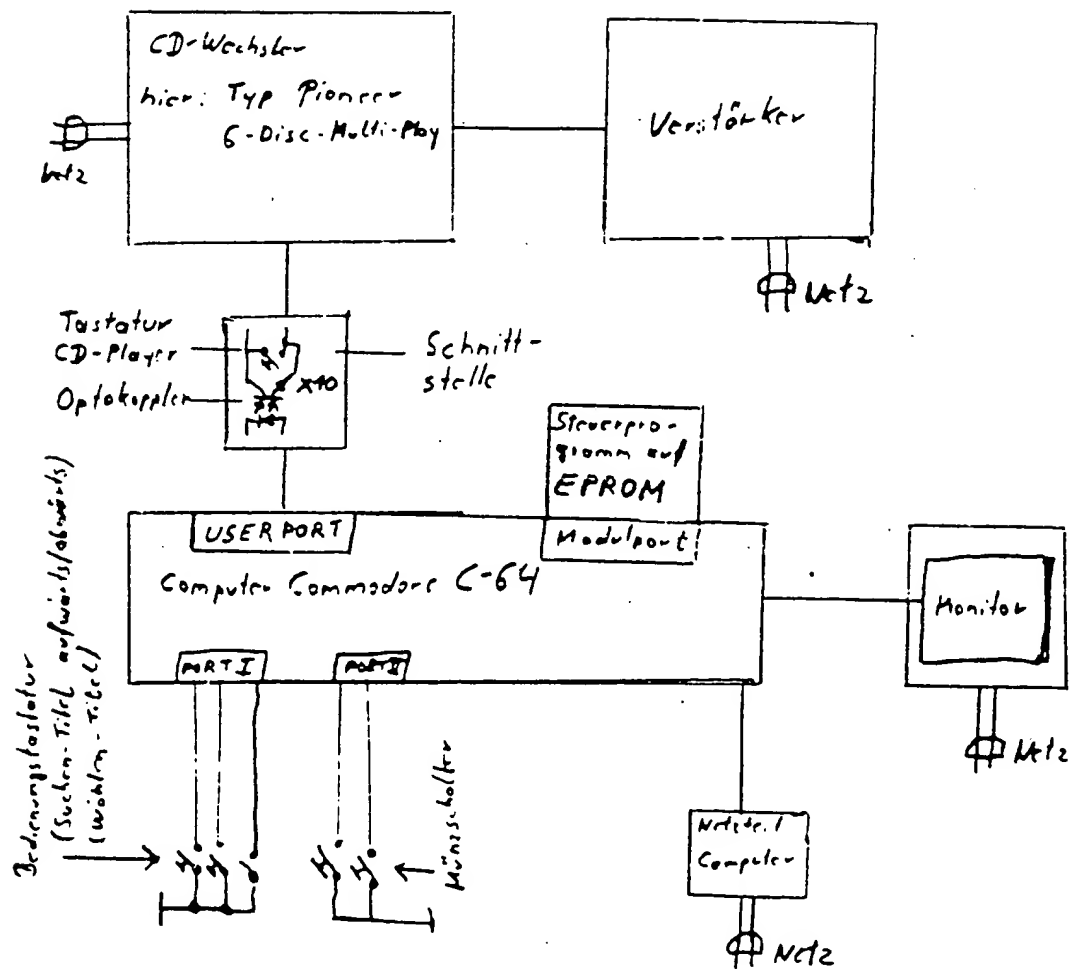 CD-Wechsler
hier: Typ Pioneer
6-Disc-Multi-Play
Netz
Verstärker
Netz
Tastatur
CD-Player
Optokoppler
x10
Schnitt-
stelle
Steuerpro-
gramm auf
EPROM
USERPORT
Modulport
Computer Commodore C-64
Monitor
PORT I
PORT II
Netz
Bedienungstastatur
(Suchen-Titel aufwärts/abwärts)
(Wählen-Titel)
Münzschalter
Netzteil
Computer
Netz